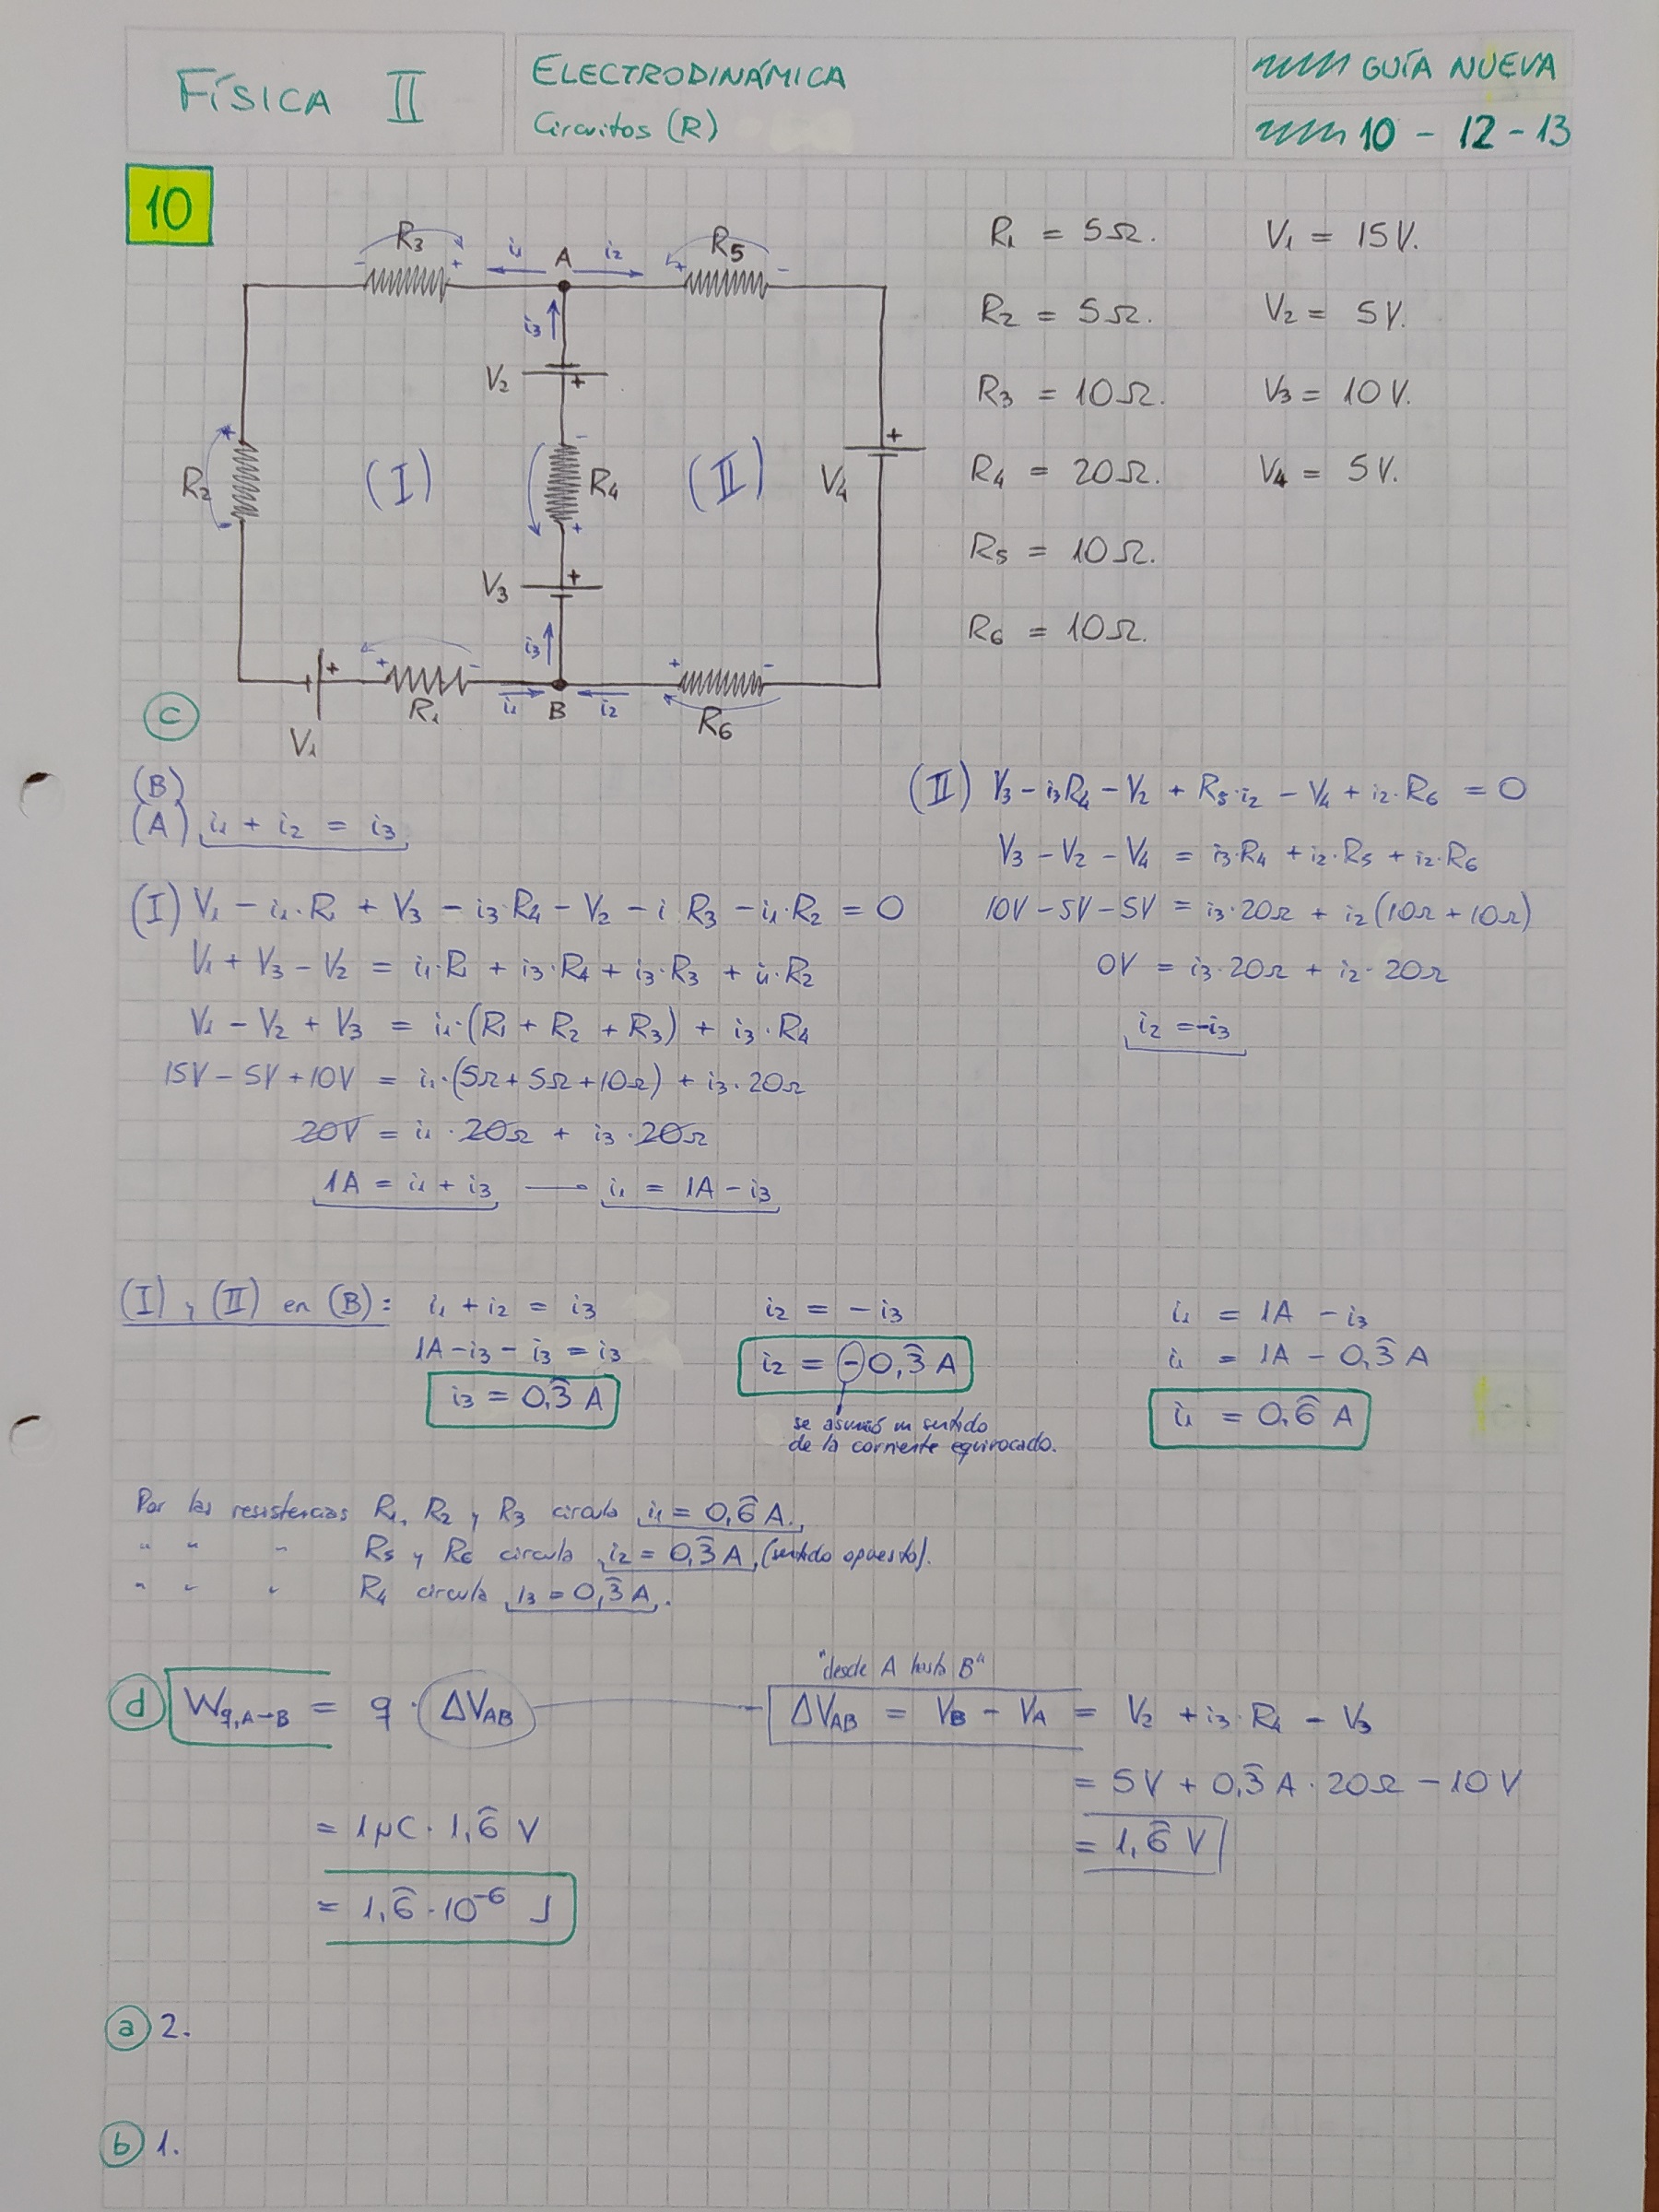 FÍSICA II
ELECTRODINÁMICA
Circuitos (R)
GUÍA NUEVA
10 - 12 - 13
10
R3 i1 A i2 R5
- + + -
i3
V2 +
R2 + - (I) - R4 + (II) V4 +
V3 +
i3
V1 + + R1 - i1 B i2 + R6 -
R1 = 5Ω.
R2 = 5Ω.
R3 = 10Ω.
R4 = 20Ω.
R5 = 10Ω.
R6 = 10Ω.
V1 = 15V.
V2 = 5V.
V3 = 10V.
V4 = 5V.
c
(B)
(A) i1 + i2 = i3
(I) V1 - i1·R1 + V3 - i3·R4 - V2 - i R3 - i1·R2 = 0
V1 + V3 - V2 = i1·R1 + i3·R4 + i3·R3 + i1·R2
V1 - V2 + V3 = i1·(R1 + R2 + R3) + i3·R4
15V - 5V + 10V = i1·(5Ω + 5Ω + 10Ω) + i3·20Ω
20V = i1·20Ω + i3·20Ω
1A = i1 + i3 — i1 = 1A - i3
(II) V3 - i3R4 - V2 + R5·i2 - V4 + i2·R6 = 0
V3 - V2 - V4 = i3·R4 + i2·R5 + i2·R6
10V - 5V - 5V = i3·20Ω + i2(10Ω + 10Ω)
0V = i3·20Ω + i2·20Ω
i2 = -i3
(I) y (II) en (B): i1 + i2 = i3
1A - i3 - i3 = i3
i3 = 0,3̂ A
i2 = - i3
i2 = - 0,3̂ A
se asumió un sentido
de la corriente equivocado.
i1 = 1A - i3
i1 = 1A - 0,3̂ A
i1 = 0,6̂ A
Por las resistencias R1, R2 y R3 circula i1 = 0,6̂ A.
" " " R5 y R6 circula i2 = 0,3̂ A, (sentido opuesto).
" " " R4 circula i3 = 0,3̂ A.
d Wq,A→B = q · ΔVAB
"desde A hasta B"
ΔVAB = VB - VA = V2 + i3·R4 - V3
= 5V + 0,3̂ A · 20Ω - 10V
= 1,6̂ V
= 1μC · 1,6̂ V
= 1,6̂ · 10⁻⁶ J
a 2.
b 1.